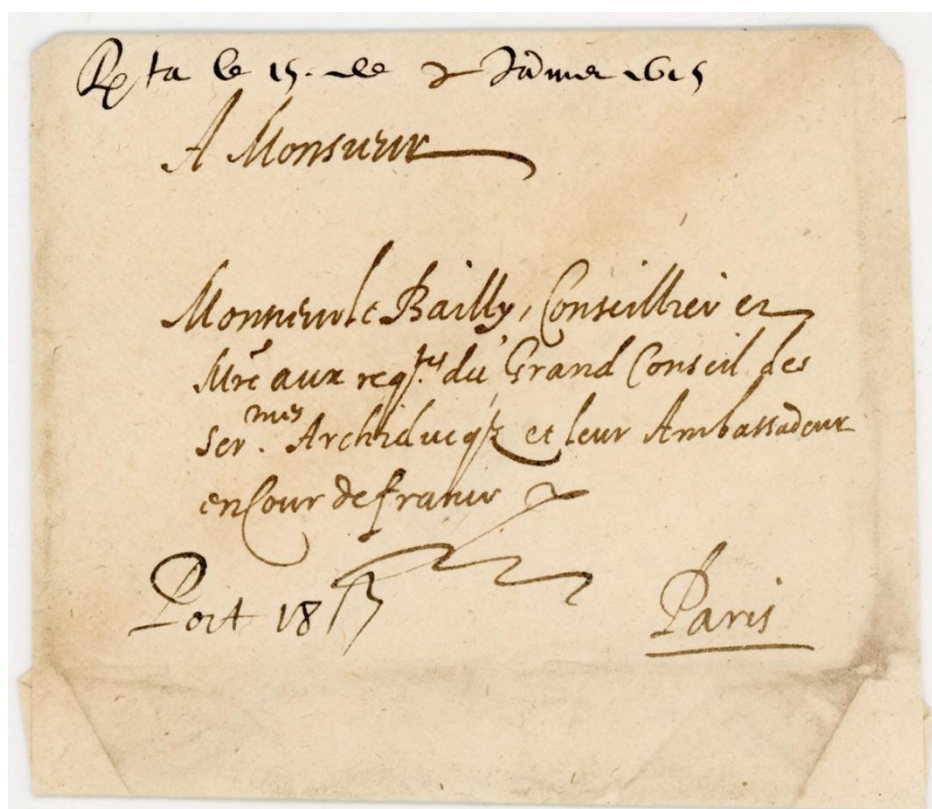 Rta le 15. de Janvier 1615
A Monsieur
Monsieur le Bailly, Conseillier et
Mre aux reqtes du Grand Conseil des
Sermes Archiducqz et leur Ambassadeur
en Cour de france
Port 18
Paris